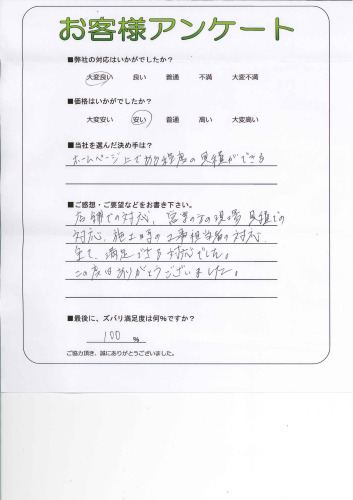 お客様アンケート
■弊社の対応はいかがでしたか?
大変良い 良い 普通 不満 大変不満
■価格はいかがでしたか?
大変安い 安い 普通 高い 大変高い
■当社を選んだ決め手は?
ホームページ上である程度の見積ができる
■ご感想・ご要望などをお書き下さい。
店舗での対応、営業の方の現場見積での
対応、施工時の工事担当者の対応、
全て、満足できる対応でした。
この度はありがとうございました。
■最後に、ズバリ満足度は何%ですか?
100 %
ご協力頂き、誠にありがとうございました。